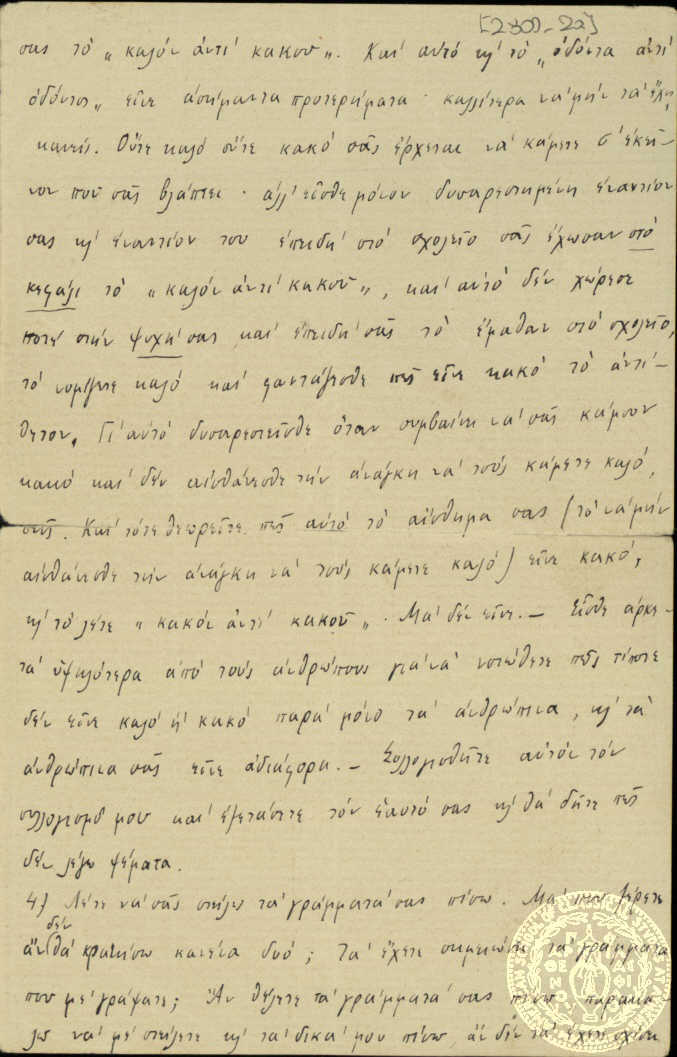 [2309-2α]
σας τὸ „καλόν ἀντί κακοῦ„. Καί αὐτό κι' τὸ „ὀδόντα ἀντί
ὀδόντος„ εἶνε ἀσήμαντα προτερήματα· καλλίτερα νά μήν τά ἔχῃ
κανείς. Οὔτε καλό οὔτε κακό σᾶς ἔρχεται νά κάμετε σ' ἐκεῖ-
νον ποῦ σᾶς βλάπτει· ἀλλ' εἶσθε μόνον δυσαρεστημένη ἐναντίον
σας κι' ἐναντίον του ἐπειδή στό σχολεῖο σᾶς ἔχωσαν στό
κεφάλι τὸ „καλόν ἀντί κακοῦ„, καί αὐτό δέν χώρεσε
ποτέ στήν ψυχή σας καί ἐπειδή σᾶς τὸ ἔμαθαν στό σχολεῖο,
τό νομίζετε καλό καί φαντάζεσθε πῶς εἶνε κακό τό ἀντί-
θετον. Γι' αὐτό δυσαρεστεῖσθε ὅταν συμβαίνῃ νά σᾶς κάμουν
κακό καί δέν αἰσθάνεσθε τήν ἀνάγκη νά τούς κάμετε καλό,
σεῖς. Καί τότε θεωρεῖτε πῶς αὐτό τό αἴσθημα σας (τό νά μήν
αἰσθάνεσθε τήν ἀνάγκη νά τούς κάμετε καλό) εἶνε κακό,
κι' τό λέτε „κακόν ἀντί κακοῦ„. Μά δέν εἶνε.— Εἶσθε ἀρκε-
τά ὑψηλότερα ἀπό τούς ἀνθρώπους γιά νά νοιώθετε πῶς τίποτε
δέν εἶνε καλό ἤ κακό παρά μόνο τά ἀνθρώπινα, κι' τά
ἀνθρώπινα σᾶς εἶνε ἀδιάφορα.— Συλλογισθῆτε αὐτόν τόν
συλλογισμό μου καί ἐξετάσετε τόν ἑαυτό σας κι' θά δῆτε πῶς
δέν λέγω ψέματα.
4) Λέτε νά σᾶς στείλω τά γράμματά σας πίσω. Μά ποῦ ξέρετε
ἄν δέν θά κρατήσω κανένα δυό; Τά ἔχετε σημειώσει τά γράμματα
ποῦ μέ γράψατε; Ἄν θέλετε τά γράμματά σας πίσω παρακα-
λῶ νά μέ στείλετε κι' τά δικά μου πίσω, ἄν δέν τά ἔχετε σχίσει